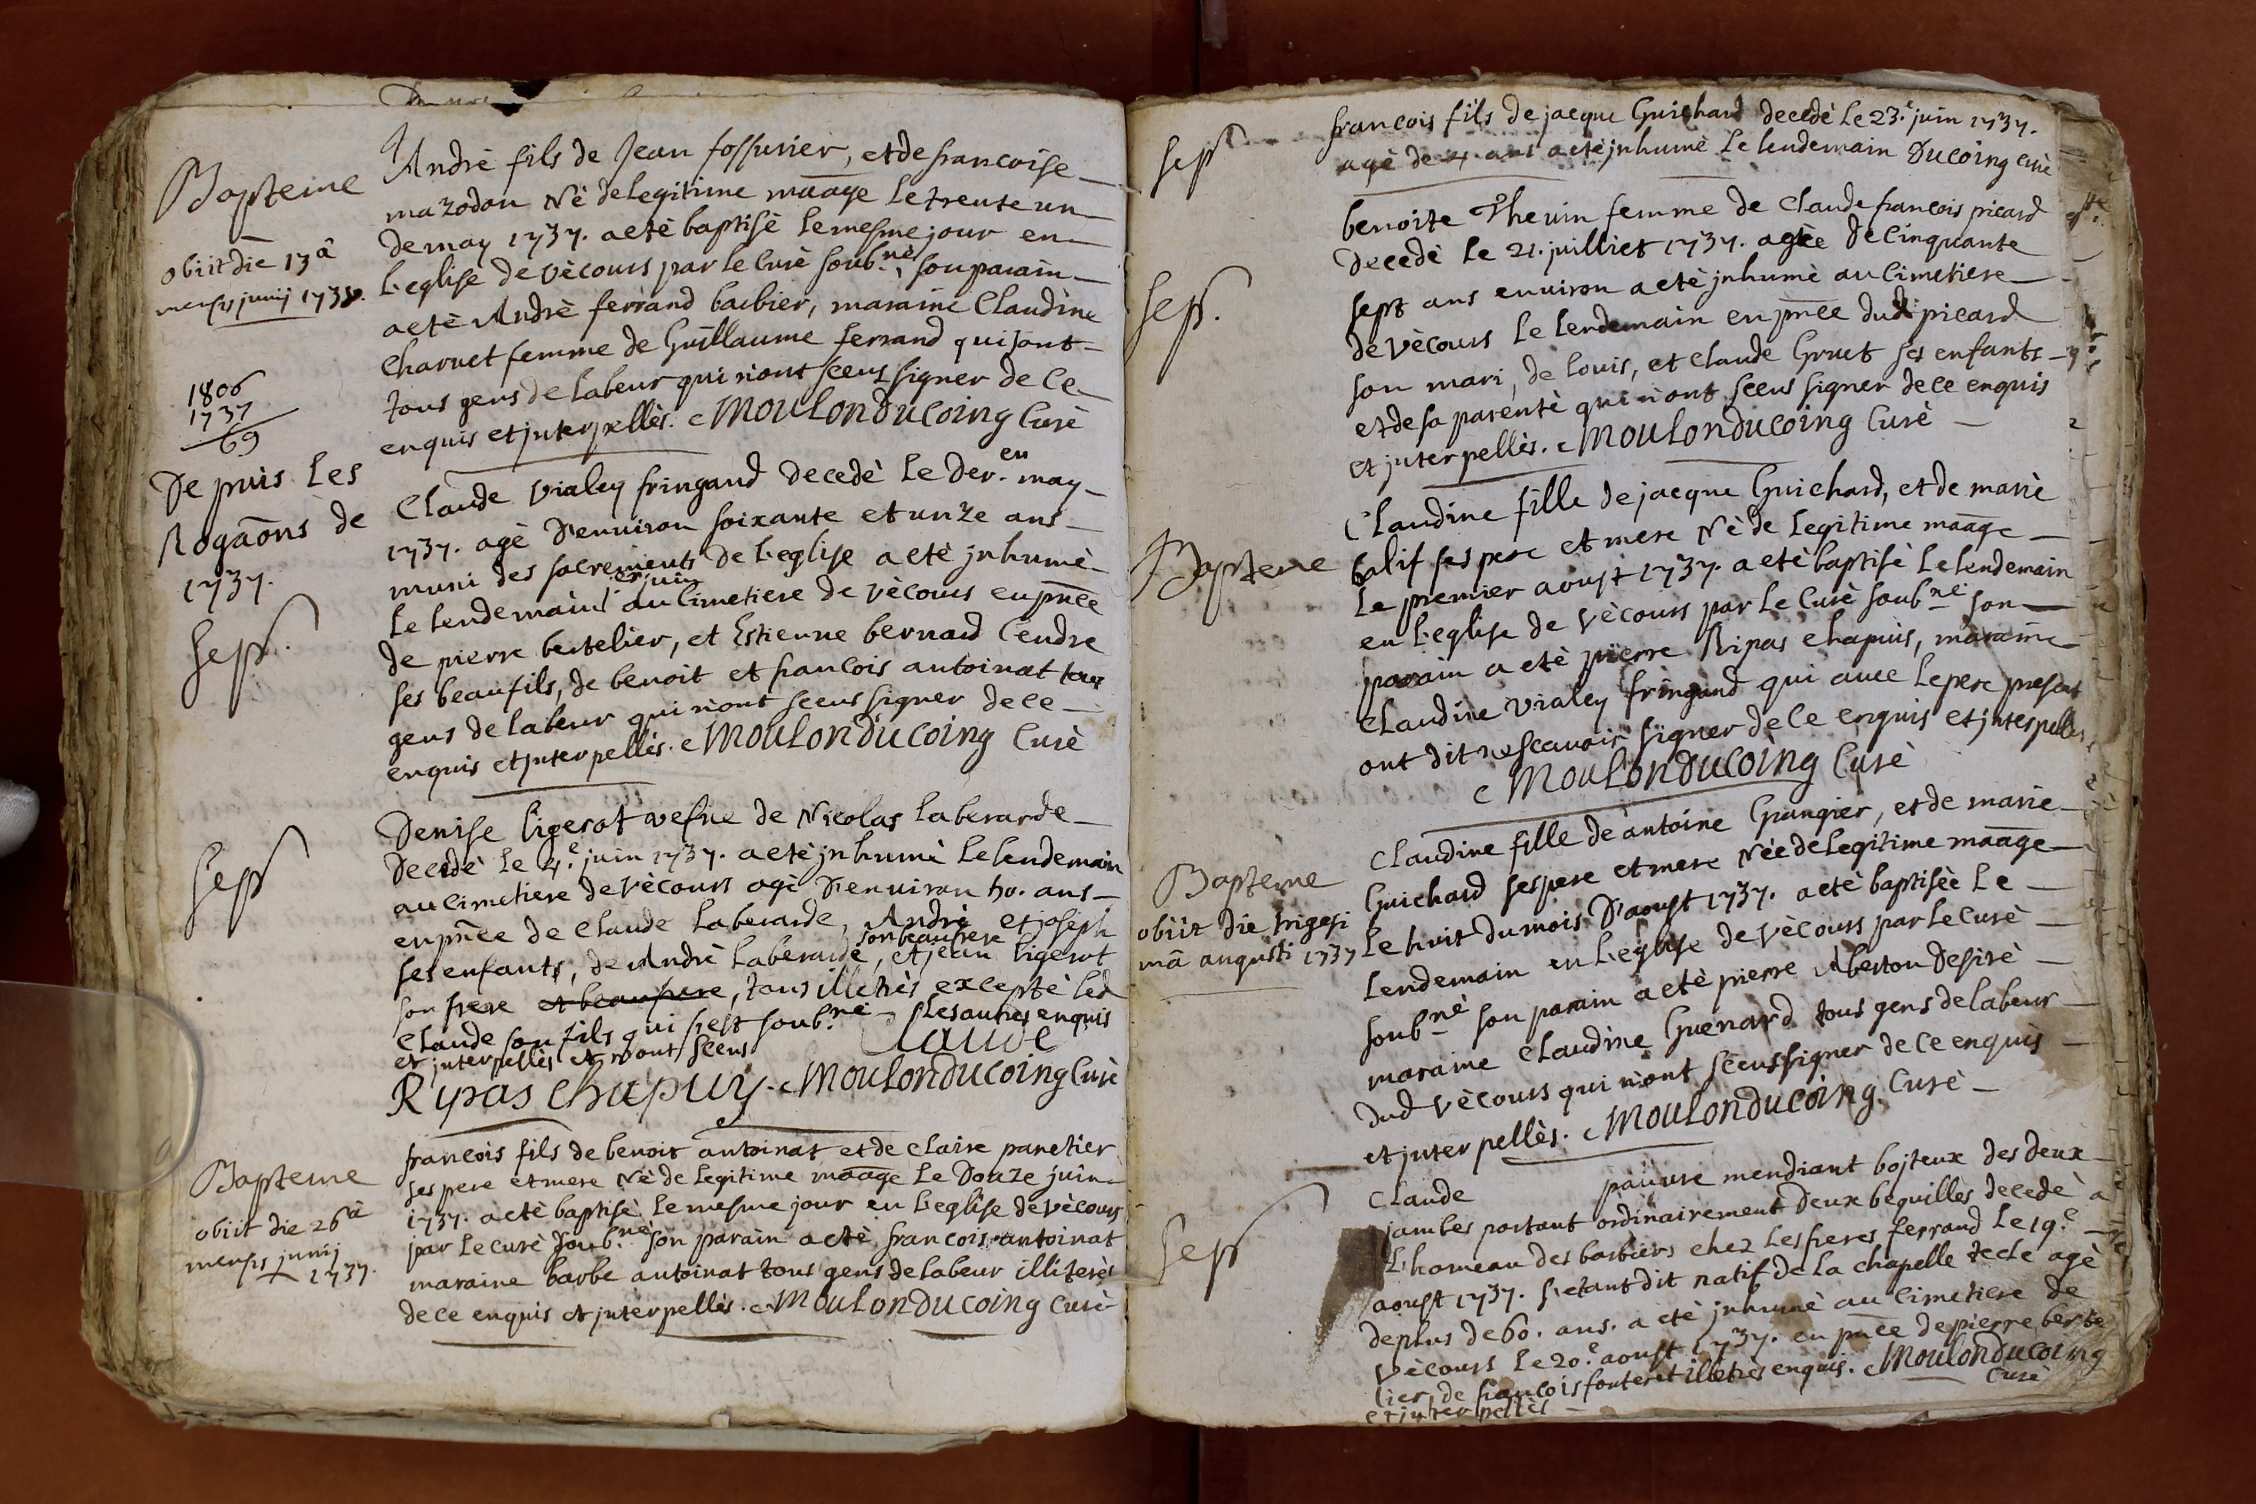 Bapteme
obiit die 13â
mensis junij 1738.
André fils de Jean fossurier, et de francoise
mazodon Né de legitime māage le trente un
de may 1737. a eté baptisé le mesme jour en
L'eglise de vècours par le Curé soub.né, son parain
a eté André ferrand barbier, maraine Claudine
Charvet femme de Guillaume ferrand qui sont
tous gens de labeur qui n'ont sceus signer de ce
enquis et interpellés. MOULONDUCOING Curé
1806
1737
69
Depuis Les
Rogaōns de
1737.
sep.
Claude Vialey fringand decedé le der. en may
1737. agé d'environ soixante et unze ans
muni des sacrements de L'eglise a eté jnhumé
le lendemain 1er juin au Cimetiere de vècours en pn̄ce
de pierre bertelier, et Estienne bernard Cendre
ses beaufils, de benoit et francois antoinat tous
gens de labeur qui n'ont sceus signer de ce
enquis et jnterpellés. MOULONDUCOING Curé
sep
Denise ligerot vefve de Nicolas laberarde
Decedé le 4.e juin 1737. a eté jnhumé le lendemain
au Cimetiere de vècours agé d'environ 50. ans
en pn̄ce de Claude laberarde, André et joseph
ses enfants, de André laberarde son beaufrere, et jean ligerot
son frere et beaufrere, tous illetrés excepté led
Claude son fils qui s'est soub.né Les autres enquis
et jnterpellés et n'ont sceus
Claude
Rypas chapuy. MOULONDUCOING Curé
Bapteme
obiit die 26â
mensis junij
1737.
francois fils de benoit antoinat et de Claire panetier
ses pere et mere Né de legitime māage le Douze juin
1737. a eté baptisé le mesme jour en L'eglise de vècours
par le Curé soub.né son parain a eté francois antoinat
maraine barbe antoinat tous gens de labeur illiterés
de ce enquis et jnterpellés. MOULONDUCOING Curé
sep
francois fils de jacque Guichard decedé le 23.e juin 1737.
agé de 4 ans a eté jnhumé le lendemain DUCOING Curé
sep.
benoite Thevin femme de Claude francois picard
Decedé le 21. juilliet 1737. agée de Cinquante
sept ans environ a eté jnhumé au Cimetiere
de vècours le lendemain en pn̄ce dud picard
son mari, de louis, et Claude Gruet ses enfants
et de sa parenté qui n'ont sceus signer de ce enquis
et jnterpellés. MOULONDUCOING Curé
Bapteme
Claudine fille de jacque Guichard, et de marie
balif ses pere et mere Né de legitime māage
le premier aoust 1737. a eté baptisé le lendemain
en L'eglise de vècours par le Curé soub.né son
parain a eté pierre Ripas chapuis, maraine
Claudine Vialey fringand qui avec le pere present
ont dit ne scavoir signer de ce enquis et jnterpellés
MOULONDUCOING Curé
Bapteme
obiit die trigesi
mâ augusti 1737
Claudine fille de antoine Grangier, et de marie
Guichard ses pere et mere Née de legitime māage
le huit du mois d'aoust 1737. a eté baptisée le
lendemain en L'eglise de vècours par le Curé
soub.né son parain a eté pierre Aberton desiré
maraine Claudine Guenard tous gens de labeur
dud vècours qui n'ont sceus signer de ce enquis
et jnterpellés. MOULONDUCOING Curé
sep
Claude pauvre mendiant bojteux des deux
jambes portant ordinairement deux bequilles decedé a
L'hameau des barbiers chez les freres ferrand le 19.e
aoust 1737. s'etant dit natif de la chapelle tecle agé
de plus de 60. ans. a eté jnhumé au Cimetiere de
vècours le 20.e aoust 1737. en pn̄ce de pierre berte
lier, de francois fouteret illetrés enquis. MOULONDUCOING
et jnterpellés Curé